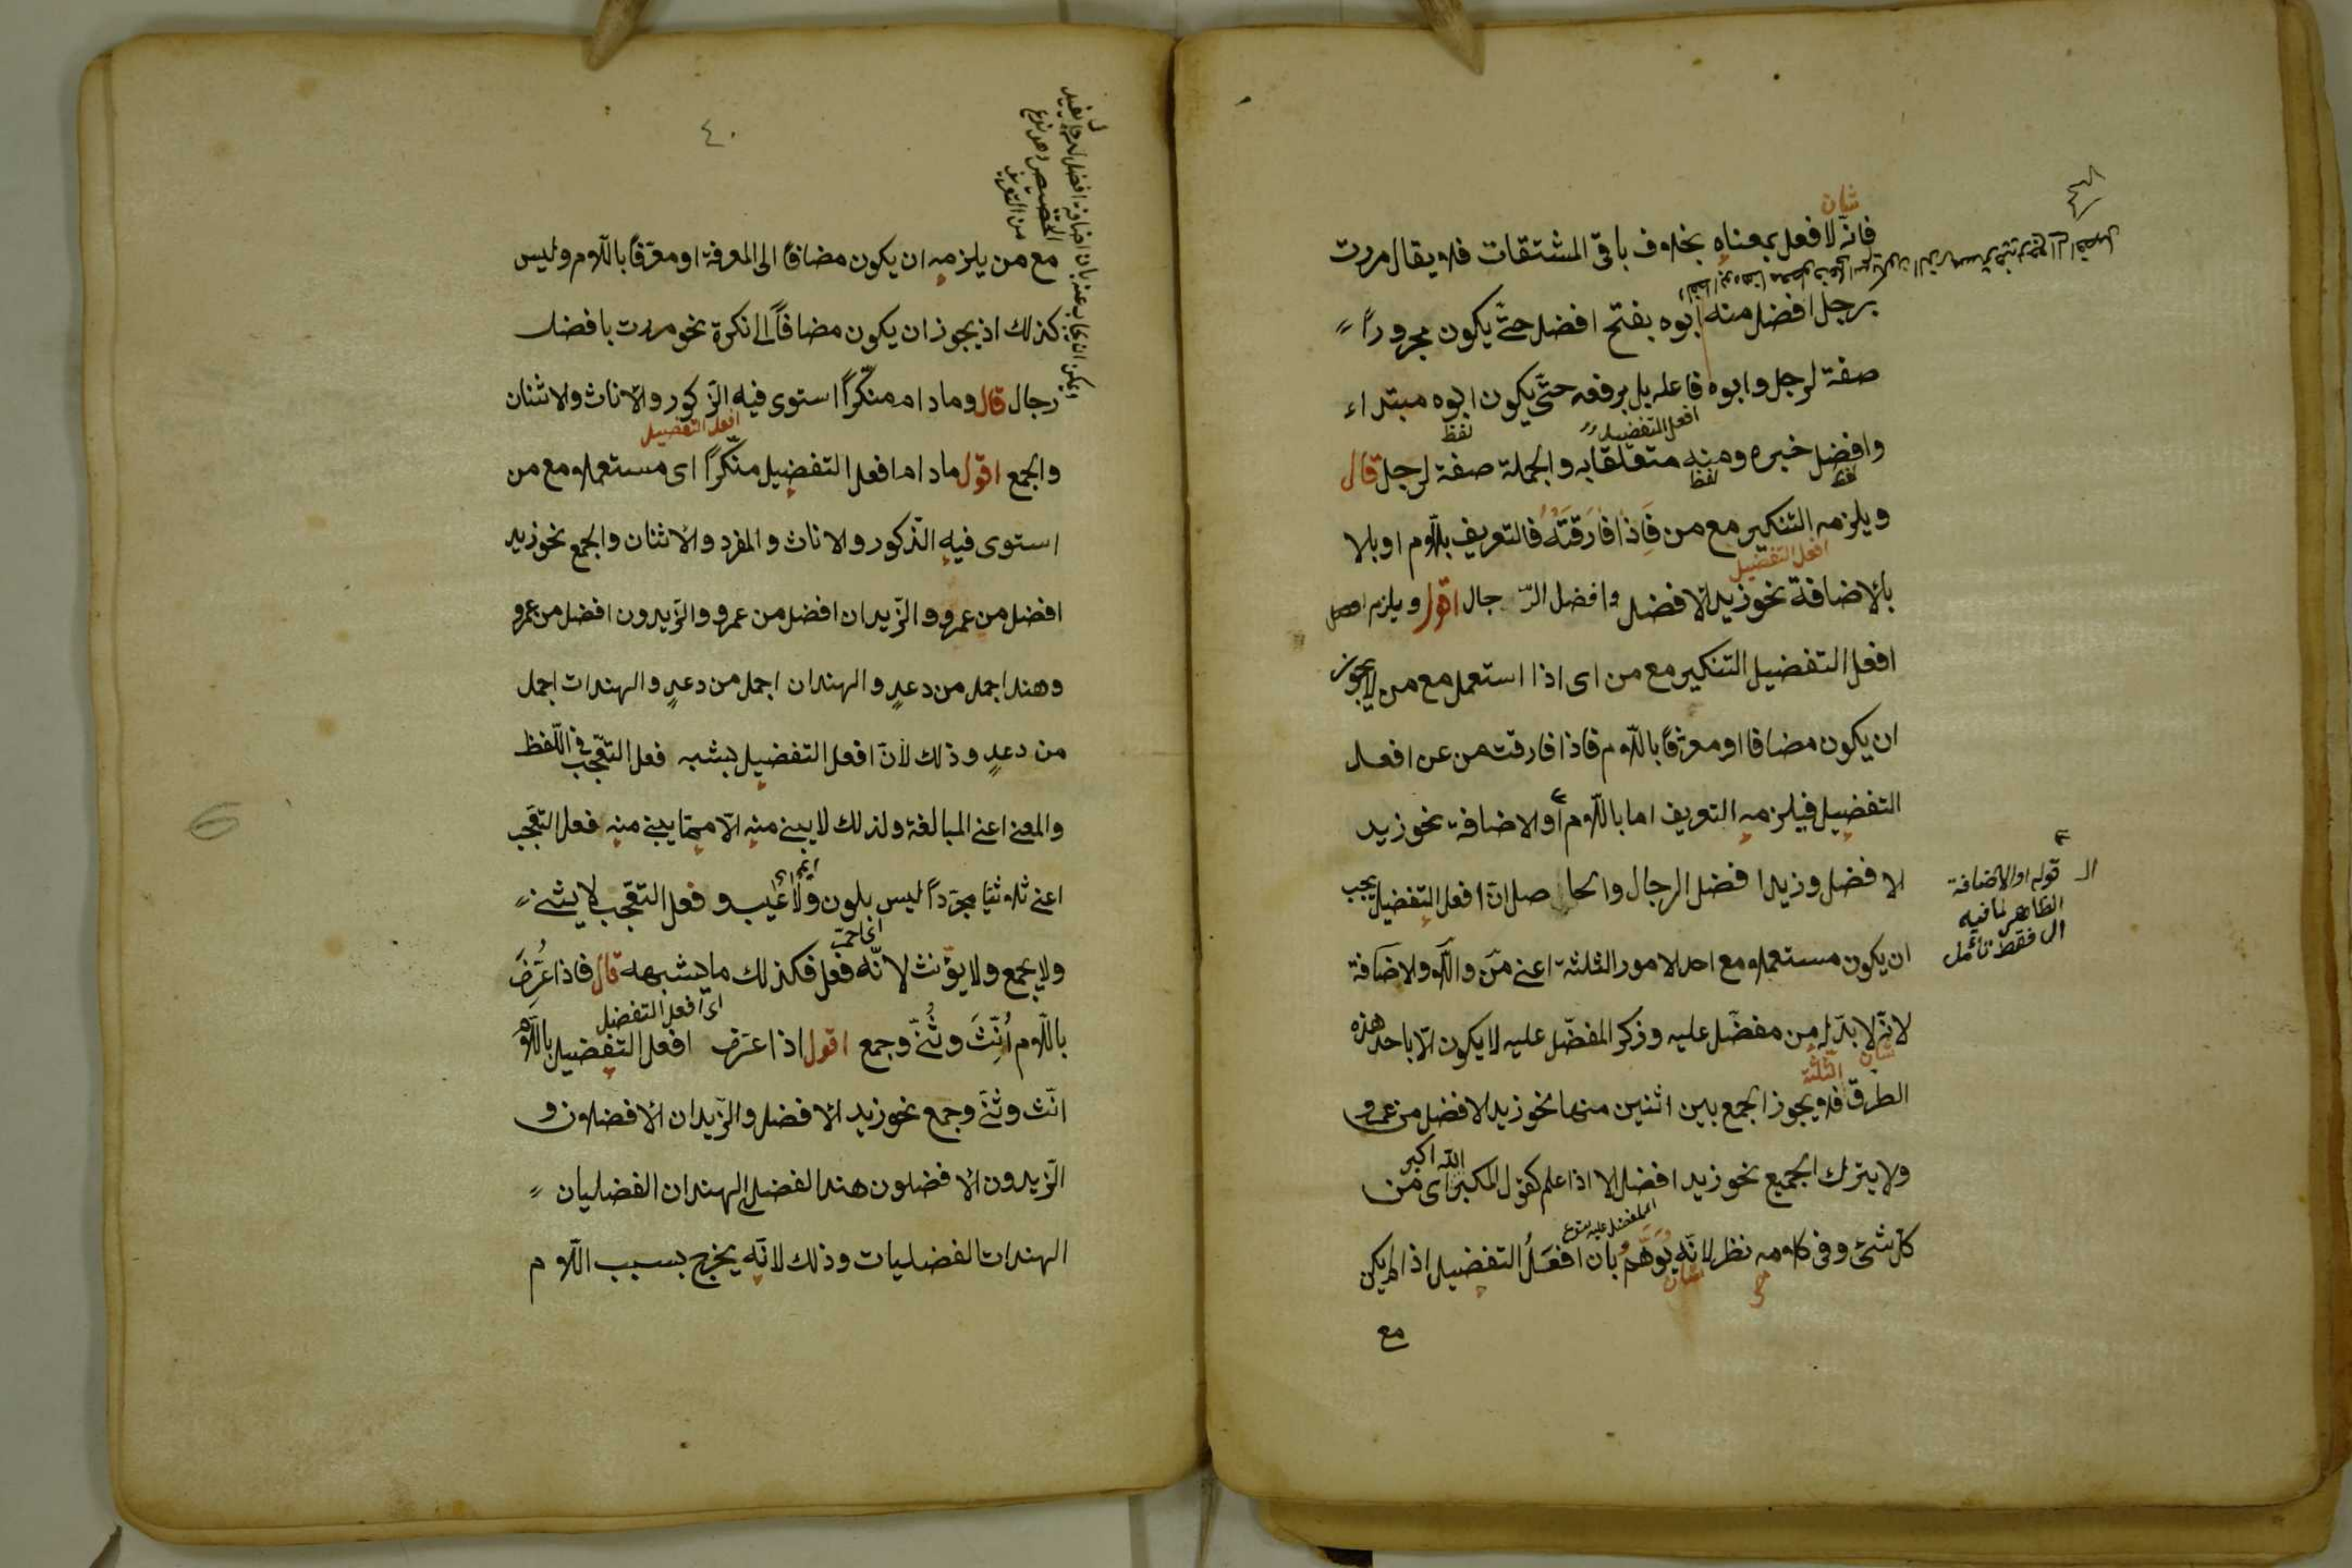 فانه لا فعل بمعناه بخلاف باقى المشتقات فلا يقال مررت
برجل افضل منه ابوه بفتح افضل حتى يكون مجروراً
صفة لرجل وابوه فاعله بل برفعه حتى يكون ابوه مبتداء
وافضل خبره ومنه متعلقا به والجملة صفة لرجل قال
ويلزمه التنكير مع من فاذا فارقته فالتعريف بللّام او بالا
بالاضافة نحو زيد الافضل وافضل الرّجال اقول ويلزم
افعل التفضيل التنكير مع من اى اذا استعمل مع من لا يجوز
ان يكون مضافا او معرّفاً باللّام فاذا فارقت من عن افعل
التفضيل فيلزمه التعريف اما باللّام أو الاضافة نحو زيد
الافضل وزيد افضل الرجال والحاصل انّ افعل التفضيل يجب
ان يكون مستعملا مع احد الامور الثلثة اعنى من واللّام والاضافة
لانّه لا بدّ له من مفضّل عليه وذكر المفضّل عليه لا يكون الّا باحد هذه
الطرق فلا يجوز الجمع بين اثنين منها نحو زيد الافضل من عمرو
ولا يترك الجميع نحو زيد افضل الا اذا علم كقول المكبر الله اكبر اى من
كلّ شئ وفى كلامه نظر لانّه يوهم بان افعل التفضيل اذا لم يكن
مع
شان
افعل التفضيل
لفظ
لفظ
لفظ
افعل التفضيل
شان
الثلثة
شان
قوله او الاضافة
الظاهر لما فيه
ال فقط تأمل
٤٠
مع من يلزمه ان يكون مضافاً الى المعرفة او معرّفاً باللّام وليس
كذلك اذ يجوز ان يكون مضافاً الى نكرة نحو مررت بافضل
رجال قال وما دام منكّراً استوى فيه الذّكور والاناث والاثنان
والجمع اقول ما دام افعل التفضيل منكّراً اى مستعملا مع من
استوى فيه الذّكور والاناث والمفرد والاثنان والجمع نحو زيد
افضل من عمرو والزّيدان افضل من عمرو والزّيدون افضل من عمرو
وهند اجمل من دعدٍ والهندان اجمل من دعدٍ والهندات اجمل
من دعدٍ وذلك لأنّ افعل التفضيل يشبه فعل التعّجب فى اللّفظ
والمعنى اعنى المبالغة ولذلك لا يبنى منه الّا ممّا يبنى منه فعل التعّجب
اعنى ثلاثيّا مجرّداً ليس بلون ولا عيب وفعل التعّجب لا يثنى
ولا يجمع ولا يؤنّث لانّه فعل فكذلك ما يشبهه قال فاذا عُرِّفَ
باللّام اُنِّثَ وثُنّى وجمع اقول اذا عرّف افعل التفضيل باللّام
انّث وثنّى وجمع نحو زيد الافضل والزّيدان الافضلان و
الزّيدون الافضلون هند الفضلى الهندان الفضليان
الهندات الفضليات وذلك لانّه يخرج بسبب اللّام
افعل التفضيل
اى افعل التفضيل
من التعريف